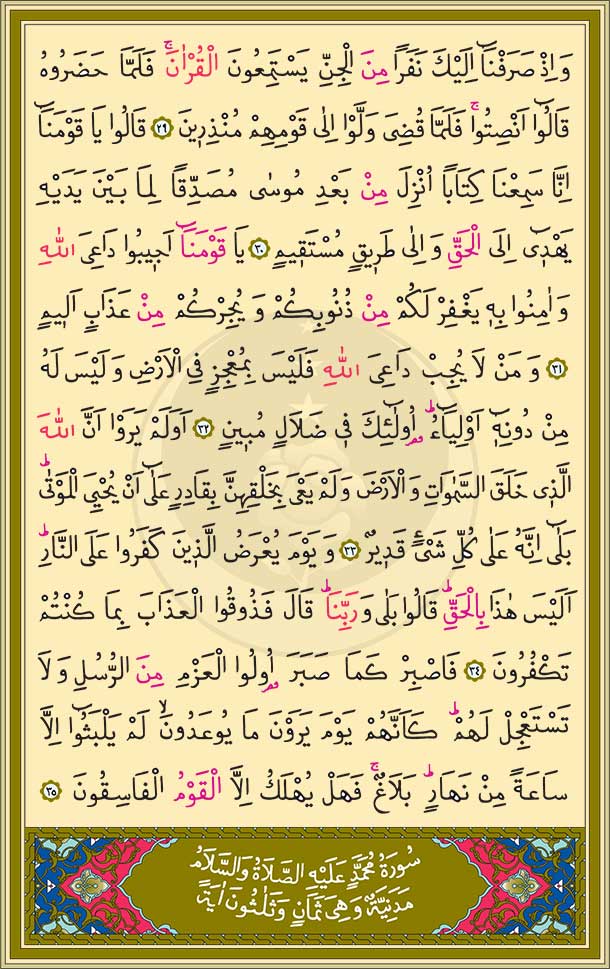 وَاِذْ صَرَفْنَٓا اِلَيْكَ نَفَرًا مِنَ الْجِنِّ يَسْتَمِعُونَ الْقُرْاٰنَۚ فَلَمَّا حَضَرُوهُ
قَالُٓوا اَنْصِتُواۚ فَلَمَّا قُضِىَ وَلَّوْا اِلٰى قَوْمِهِمْ مُنْذِر۪ينَ ﴿٢٩﴾ قَالُوا يَا قَوْمَنَٓا
اِنَّا سَمِعْنَا كِتَابًا اُنْزِلَ مِنْ بَعْدِ مُوسٰى مُصَدِّقًا لِمَا بَيْنَ يَدَيْهِ
يَهْد۪ٓى اِلَى الْحَقِّ وَاِلٰى طَر۪يقٍ مُسْتَق۪يمٍ ﴿٣٠﴾ يَا قَوْمَنَٓا اَج۪يبُوا دَاعِىَ اللّٰهِ
وَاٰمِنُوا بِه۪ يَغْفِرْ لَكُمْ مِنْ ذُنُوبِكُمْ وَيُجِرْكُمْ مِنْ عَذَابٍ اَل۪يمٍ
﴿٣١﴾ وَمَنْ لَا يُجِبْ دَاعِىَ اللّٰهِ فَلَيْسَ بِمُعْجِزٍ فِى الْاَرْضِ وَلَيْسَ لَهُ
مِنْ دُونِه۪ٓ اَوْلِيَٓاءُۜ اُو۬لٰٓئِكَ ف۪ى ضَلَالٍ مُب۪ينٍ ﴿٣٢﴾ اَوَلَمْ يَرَوْا اَنَّ اللّٰهَ
الَّذ۪ى خَلَقَ السَّمٰوَاتِ وَالْاَرْضَ وَلَمْ يَعْىَ بِخَلْقِهِنَّ بِقَادِرٍ عَلٰٓى اَنْ يُحْيِىَ الْمَوْتٰىۜ
بَلٰٓى اِنَّهُ عَلٰى كُلِّ شَىْءٍ قَد۪يرٌ ﴿٣٣﴾ وَيَوْمَ يُعْرَضُ الَّذ۪ينَ كَفَرُوا عَلَى النَّارِۜ
اَلَيْسَ هٰذَا بِالْحَقِّۜ قَالُوا بَلٰى وَرَبِّنَاۜ قَالَ فَذُوقُوا الْعَذَابَ بِمَا كُنْتُمْ
تَكْفُرُونَ ﴿٣٤﴾ فَاصْبِرْ كَمَا صَبَرَ اُو۬لُوا الْعَزْمِ مِنَ الرُّسُلِ وَلَا
تَسْتَعْجِلْ لَهُمْۜ كَاَنَّهُمْ يَوْمَ يَرَوْنَ مَا يُوعَدُونَۙ لَمْ يَلْبَثُٓوا اِلَّا
سَاعَةً مِنْ نَهَارٍۜ بَلَاغٌۚ فَهَلْ يُهْلَكُ اِلَّا الْقَوْمُ الْفَاسِقُونَ ﴿٣٥﴾
سُورَةُ مُحَمَّدٍ عَلَيْهِ الصَّلَاةُ وَالسَّلَامُ
مَدَنِيَّةٌ وَهِىَ ثَمَانٍ وَثَلٰثُونَ اٰيَةً